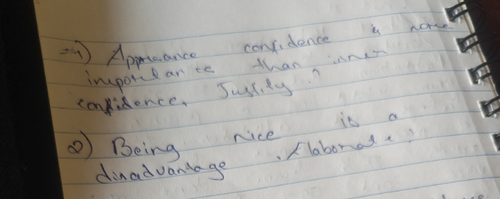 1) Appearance confidence is more
importance than inner
confidence. Justify.
2) Being nice is a
disadvantage. Elaborate.